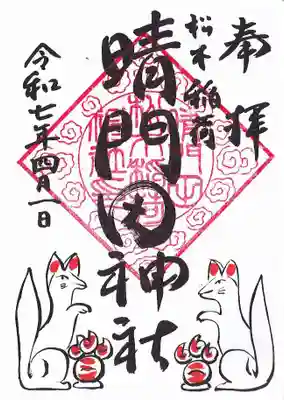 奉拝
松木稲荷
晴門田神社
令和七年四月一日